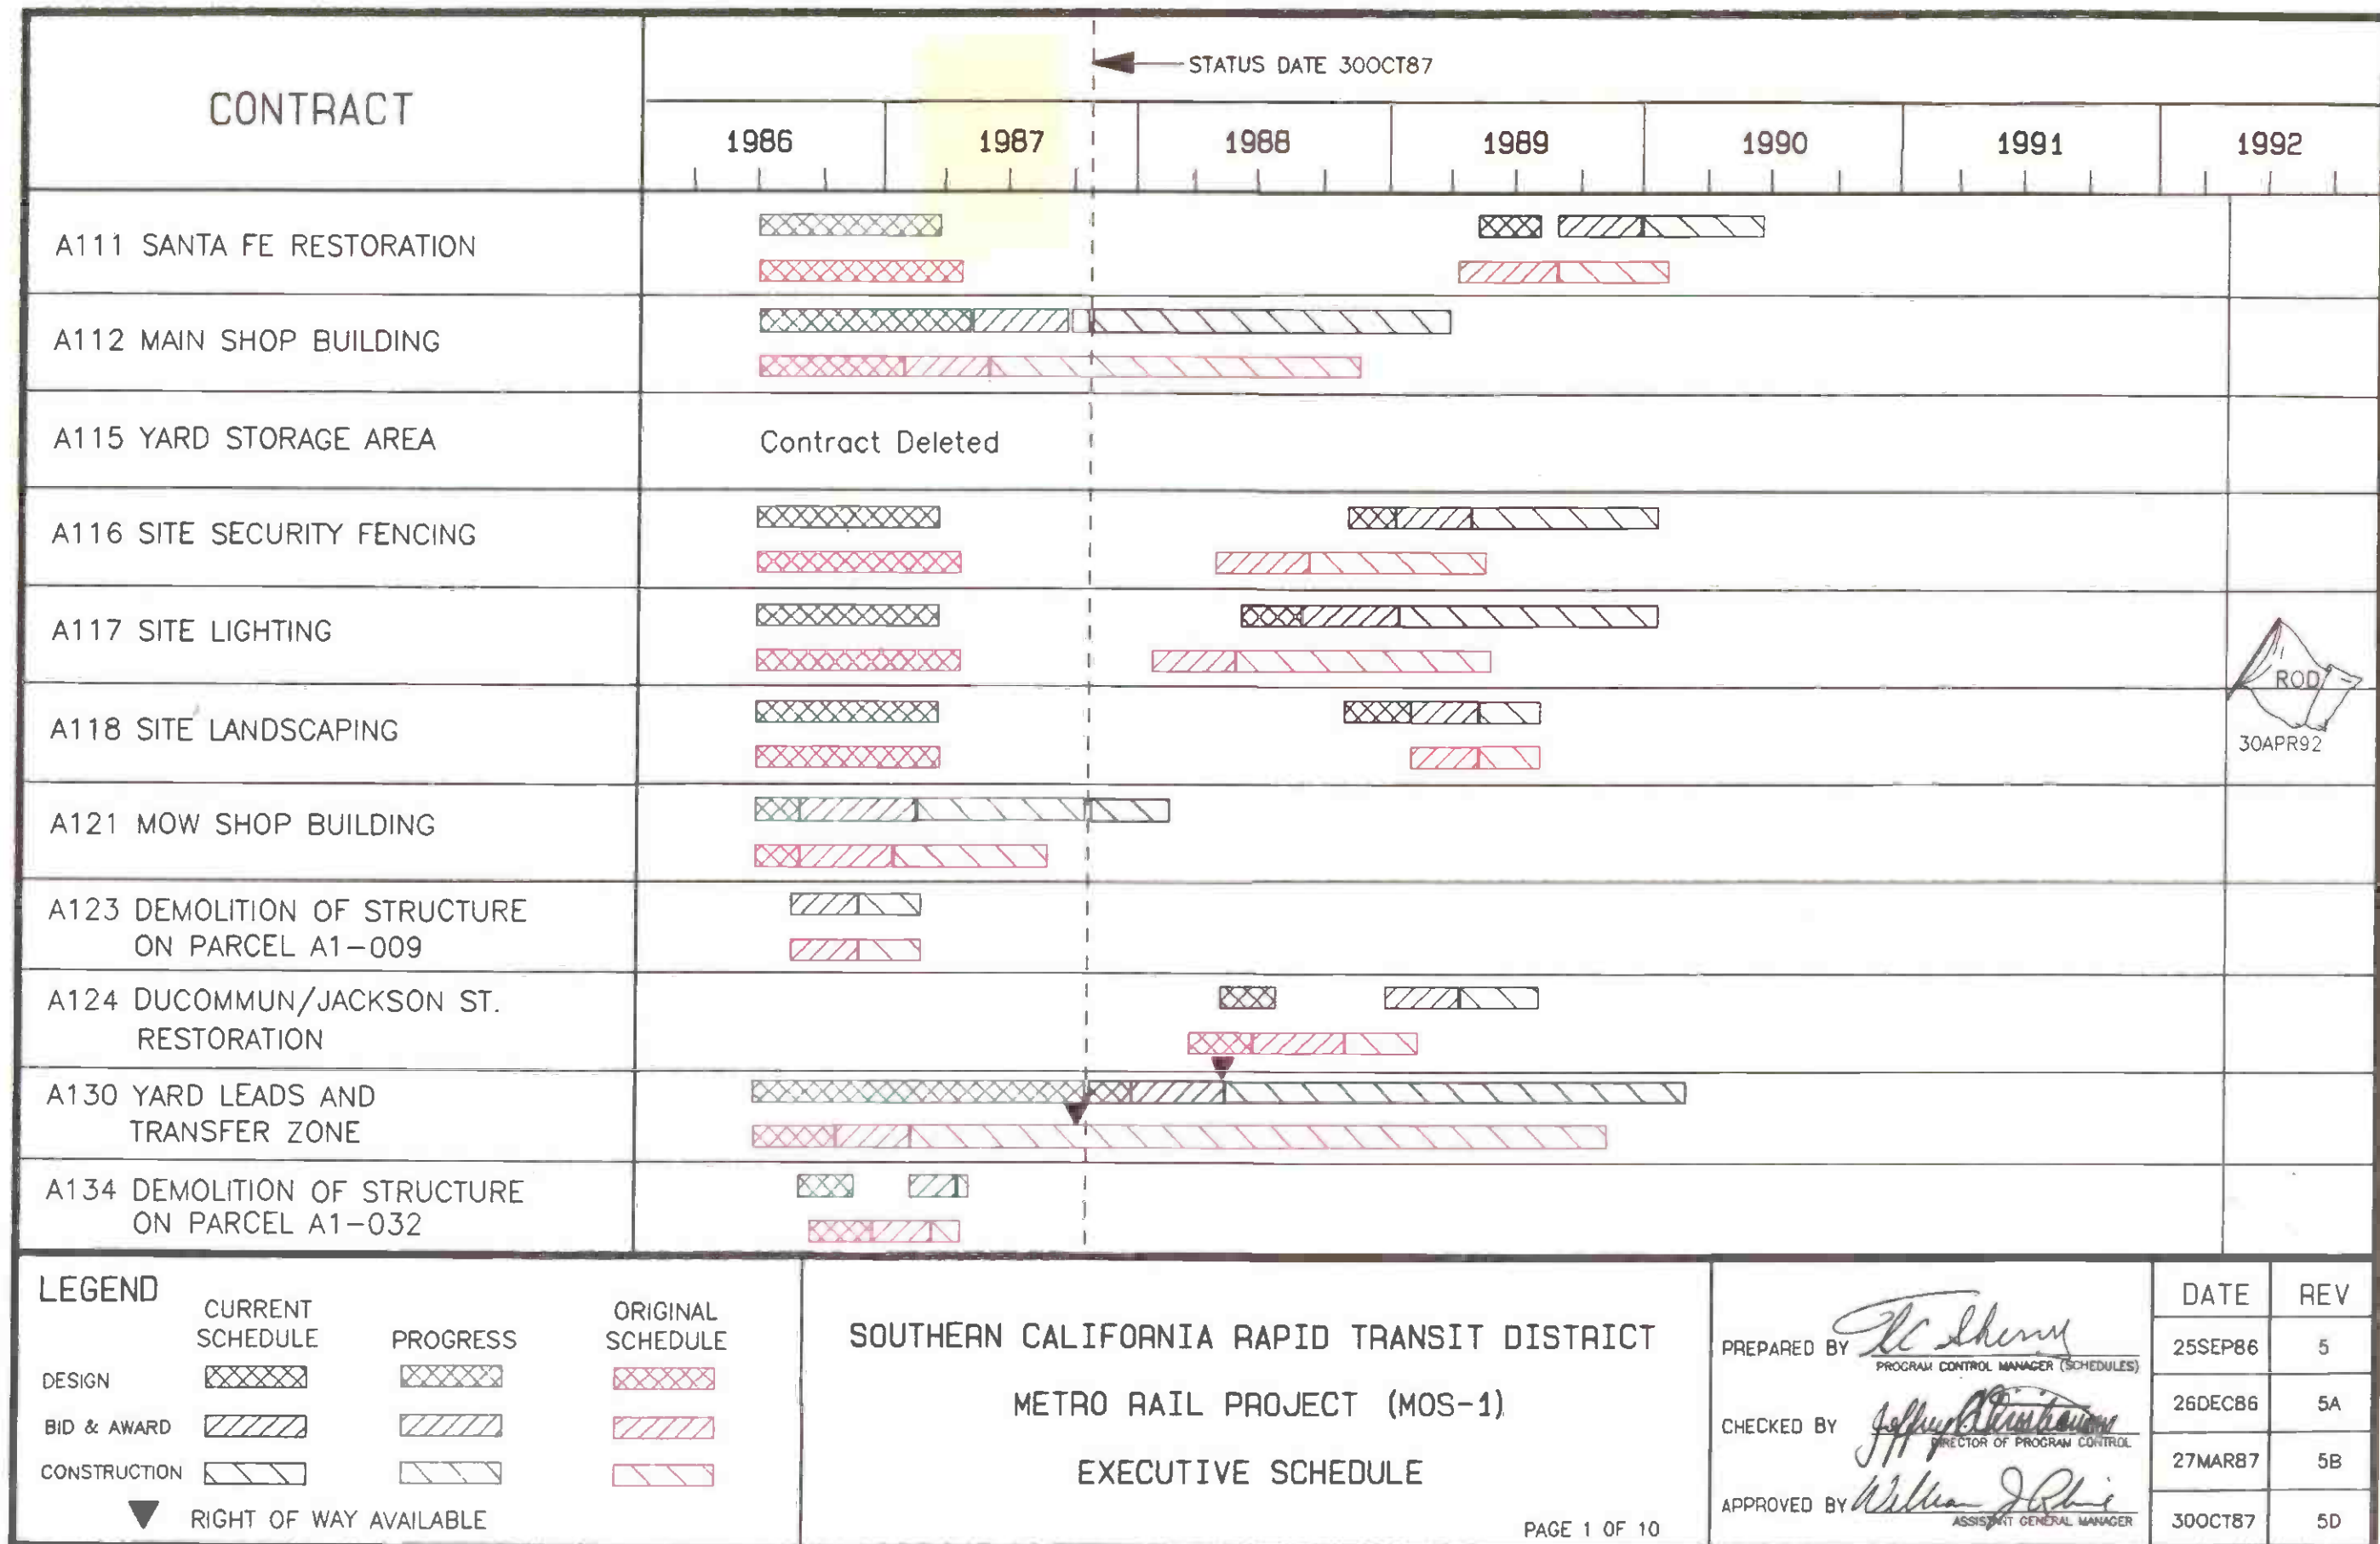 CONTRACT
STATUS DATE 30OCT87
1986 1987 1988 1989 1990 1991 1992
A111 SANTA FE RESTORATION
A112 MAIN SHOP BUILDING
A115 YARD STORAGE AREA
Contract Deleted
A116 SITE SECURITY FENCING
A117 SITE LIGHTING
ROD
30APR92
A118 SITE LANDSCAPING
A121 MOW SHOP BUILDING
A123 DEMOLITION OF STRUCTURE
ON PARCEL A1-009
A124 DUCOMMUN/JACKSON ST.
RESTORATION
A130 YARD LEADS AND
TRANSFER ZONE
A134 DEMOLITION OF STRUCTURE
ON PARCEL A1-032
LEGEND
CURRENT
SCHEDULE
PROGRESS
ORIGINAL
SCHEDULE
DESIGN
BID & AWARD
CONSTRUCTION
RIGHT OF WAY AVAILABLE
SOUTHERN CALIFORNIA RAPID TRANSIT DISTRICT
METRO RAIL PROJECT (MOS-1)
EXECUTIVE SCHEDULE
PAGE 1 OF 10
PREPARED BY
PROGRAM CONTROL MANAGER (SCHEDULES)
CHECKED BY
DIRECTOR OF PROGRAM CONTROL
APPROVED BY William J
ASSISTANT GENERAL MANAGER
DATE REV
25SEP86 5
26DEC86 5A
27MAR87 5B
30OCT87 5D